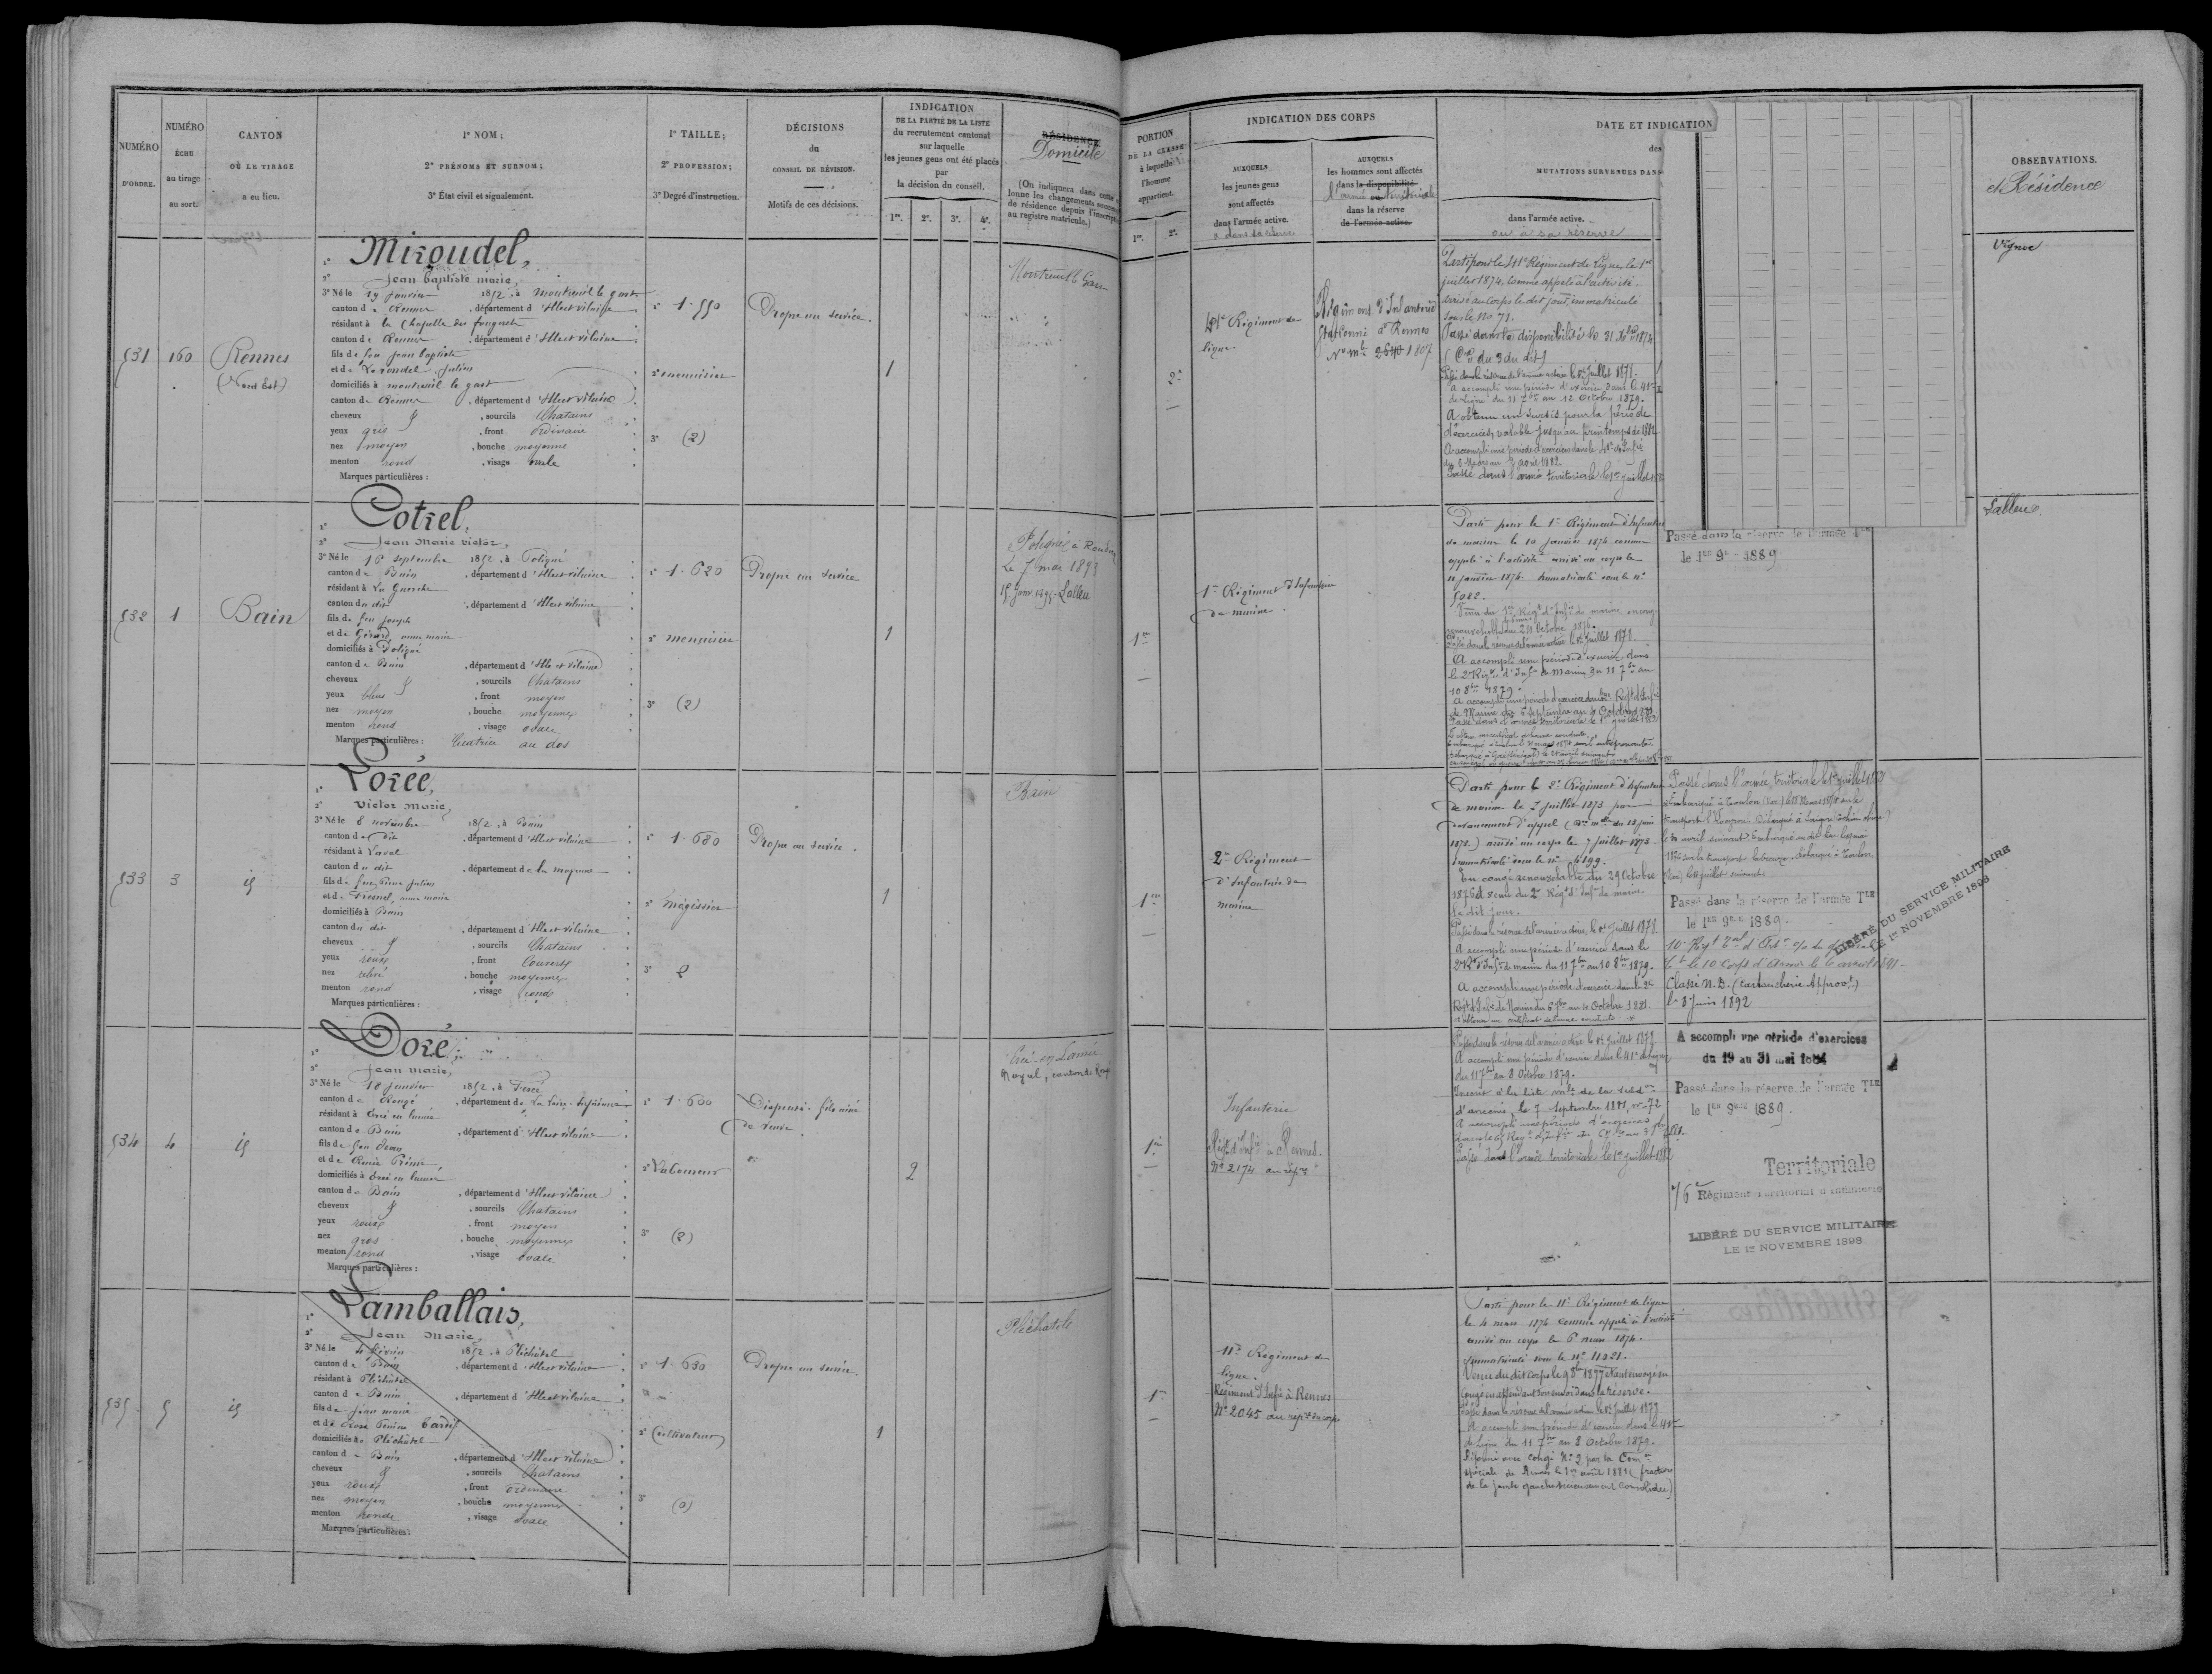 NUMÉRO
D'ORDRE.
NUMÉRO
ÉCHU
au tirage
au sort.
CANTON
OÙ LE TIRAGE
a eu lieu.
1° NOM;
2° PRÉNOMS ET SURNOM;
3° État civil et signalement.
1° TAILLE;
2° PROFESSION;
3° Degré d'instruction.
DÉCISIONS
du
CONSEIL DE RÉVISION.
Motifs de ces décisions.
INDICATION
DE LA PARTIE DE LA LISTE
du recrutement cantonal
sur laquelle
les jeunes gens ont été placés
par
la décision du conseil.
1re. 2e. 3e. 4e.
RÉSIDENCE
Domicile
(On indiquera dans cette
lonne les changements
de résidence depuis l'inscription
au registre matricule.)
531
160
Rennes
(Nord Est)
Miroudel,
2° Jean baptiste marie,
3° Né le 19 janvier 1852, à Montreuil le gast
canton de Rennes, département d'Ille et vilaine
résidant à la Chapelle des fougeretz
canton de Rennes, département d'Ille et vilaine
fils de feu Jean baptiste
et de Julien
domiciliés à montreuil le gast
canton de Rennes, département d'Ille et vilaine
cheveux, sourcils Chatains
yeux gris, front Ordinaire
nez moyen, bouche moyenne
menton rond, visage ovale
Marques particulières :
1° 1.550
2° menuisier
3° (2)
Propre au service.
1
Montreuil le Gast
532
1
Bain
Cotrel,
2° Jean Marie victor,
3° Né le 18 septembre 1852, à Poligné
canton de Bain, département d'Ille et vilaine
résidant à La Guerche
canton du dit, département d'Ille et vilaine
fils de feu Joseph
et de Gérard, anne marie
domiciliés à Poligné
canton de Bain, département d'Ille et vilaine
cheveux, sourcils Chatains
yeux bleus, front moyen
nez moyen, bouche moyenne
menton rond, visage ovale
Marques particulières : Cicatrice au dos
1° 1.620
2° menuisier
3° (2)
Propre au service
1
Poligné
Le 7 mai 1893
Lalleu
533
3
id
Lorée,
2° Victor Marie,
3° Né le 8 novembre 1852, à Bain
canton du dit, département d'Ille et vilaine
résidant à Laval
canton du dit, département de la mayenne
fils de feu Pierre Julien
et de Fresnel, anne marie
domiciliés à Bain
canton du dit, département d'Ille et vilaine
cheveux, sourcils Chatains
yeux roux, front Couvert
nez relevé, bouche moyenne
menton rond, visage rond
Marques particulières :
1° 1.680
2° mégissier
3° 2
Propre au service.
1
Bain
534
4
id
Doré,
2° Jean marie,
3° Né le 18 janvier 1852, à Fercé
canton de Rougé, département de La Loire-Inférieure
résidant à Ercé en lamée
canton de Bain, département d'Ille et vilaine
fils de feu Jean
domiciliés à Ercé en lamée
canton de Bain, département d'Ille et vilaine
cheveux, sourcils Chatains
yeux roux, front moyen
nez gros, bouche moyenne
menton rond, visage ovale
Marques particulières :
1° 1.600
2° Laboureur
3° (2)
Dispensé. fils aîné
de veuve.
2
Ercé en Lamée
535
5
id
Lamballais,
2° Jean Marie,
3° Né le 4 février 1852, à Pléchâtel
canton de Bain, département d'Ille et vilaine
résidant à Pléchâtel
canton de Bain, département d'Ille et vilaine
fils de Jean marie
et de Rose Perrine Tardif
domiciliés à Pléchâtel
canton de Bain, département d'Ille et vilaine
cheveux, sourcils Chatains
yeux roux, front ordinaire
nez moyen, bouche moyenne
menton ronde, visage ovale
Marques particulières :
1° 1.630
2° Cultivateur
3° (0)
Propre au service.
1
Pléchatel
PORTION
DE LA CLASSE
à laquelle
l'homme
appartient.
1re. 2e.
INDICATION DES CORPS
AUXQUELS
les jeunes gens
sont affectés
dans l'armée active.
AUXQUELS
les hommes sont affectés
dans la disponibilité
l'armée territoriale
dans la réserve
de l'armée active.
DATE ET INDICATION
des
MUTATIONS SURVENUES DANS
dans l'armée active.
ou à sa réserve
OBSERVATIONS.
et Résidence
2e
41e Régiment de
ligne.
Régiment d'Infanterie
de Rennes
1807
Parti pour le 41e Régiment de ligne, le 1er
juillet 1874, comme appelé à l'activité.
arrivé au corps le dit jour, immatriculé
sous le No 71.
Passé dans la disponibilité le 31 Xbre 1874
(Con du 9 du dit)
Passé dans la réserve de l'armée active le 1er Juillet 1878.
A accompli une période d'exercice dans le 41e
de Ligne du 11 7bre au 12 Octobre 1879.
A obtenu un sursis pour la période
d'exercices, valable jusqu'au printemps de 1882
A accompli une période d'exercices dans le 41e d'Infie
août 1882
Passé dans l'armée territoriale le 1er juillet
Vignoc
1re
1er Régiment d'Infanterie
de marine.
Parti pour le 1er Régiment d'Infanterie
de marine le 10 janvier 1874 comme
appelé à l'activité arrivé au corps le
11 janvier 1874. Immatriculé sous le no
5082.
renouvelable du 24 Octobre 1876.
Passé dans la réserve de l'armée active le 1er Juillet 1878.
A accompli une période d'exercice dans
le 2e Régt d'Infie de Marine du 11 7bre au
10 8bre 1879.
A accompli une période d'exercice dans le Régt d'Infie
de Marine du 6 septembre au 4 Octobre 1881.
Passé dans l'armée territoriale le 1er juillet 1882
Passé dans la réserve de l'armée Tle
le 1er 9bre 1889
Lalleu.
1re
2e Régiment
d'Infanterie de
marine
Parti pour le 2e Régiment d'Infanterie
de marine le 7 juillet 1873 par
devancement d'appel
1873.) arrivé au corps le 7 juillet 1873.
Immatriculé sous le no 4199.
En congé renouvelable du 29 Octobre
1876 et venu du 2e Régt d'Infie de marine
le dit jour.
Passé dans la réserve de l'armée active, le 1er Juillet 1878.
A accompli une période d'exercice dans le
2e Rt d'Infie de marine du 11 7bre au 10 8bre 1879.
A accompli une période d'exercice dans le 2e
Régt d'Infie de Marine du 6 7bre au 4 Octobre 1881.
Passé dans l'armée territoriale le 1er juillet
Passé dans la réserve de l'armée Tle
le 1er 9bre 1889.
le 10e Corps d'Armée le 6 avril 1891
Classé N. D. (Cartoucherie Approvt)
le 3 Juin 1892
LIBÉRÉ DU SERVICE MILITAIRE
LE 1er NOVEMBRE 1898
1re
Infanterie
Régt d'Infie à Rennes.
No 2174 au répre
Passé dans la réserve de l'armée active le 1er Juillet
A accompli une période d'exercice dans le 41e de ligne
du 11 7bre au 8 Octobre 1879.
Inscrit à la liste mle de la subdon
d'ancenis, le 7 Septembre 1881, no 72
A accompli une période d'exercices
Passé dans l'armée territoriale le 1er juillet 1882
A accompli une période d'exercices
du 19 au 31 mai 1884
Passé dans la réserve de l'armée Tle
le 1er 9bre 1889.
Territoriale
76e Régiment territorial d'infanterie
LIBÉRÉ DU SERVICE MILITAIRE
LE 1er NOVEMBRE 1898
1re
11e Régiment de
ligne.
Régiment d'Infie à Rennes
No 2045 au répre du corps
Parti pour le 11e Régiment de ligne
le 4 mars 1874 comme appelé à l'activité
arrivé au corps le 6 mars 1874.
Immatriculé sous le no 11021.
Venu du dit corps le 9 8bre 1877 étant envoyé en
congé en attendant son envoi dans la réserve.
Passé dans la réserve de l'armée active le 1er Juillet
A accompli une période d'exercice dans le 41e
de Ligne du 11 7bre au 8 Octobre 1879.
Réformé avec congé No 2 par la Comon
spéciale de Rennes le 1er août 1881 (fracture
de la jambe gauche vicieusement consolidée)